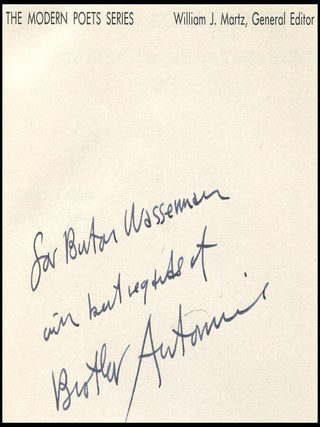 THE MODERN POETS SERIES William J. Martz, General Editor
for Burton Wasserman
with best regards of
Brother Antoninus